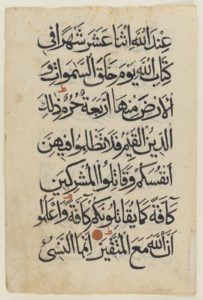 عِنْدَ اللهِ اثْنَا عَشَرَ شَهْرًا فِي
كِتَابِ اللهِ يَوْمَ خَلَقَ السَّمٰوَاتِ وَ
الْاَرْضَ مِنْهَا اَرْبَعَةٌ حُرُمٌ ذٰلِكَ
الدِّينُ الْقَيِّمُ فَلَا تَظْلِمُوا فِيهِنَّ
اَنْفُسَكُمْ وَقَاتِلُوا الْمُشْرِكِينَ
كَافَّةً كَمَا يُقَاتِلُونَكُمْ كَافَّةً وَاعْلَمُوا
اَنَّ اللهَ مَعَ الْمُتَّقِينَ اِنَّمَا النَّسِيءُ